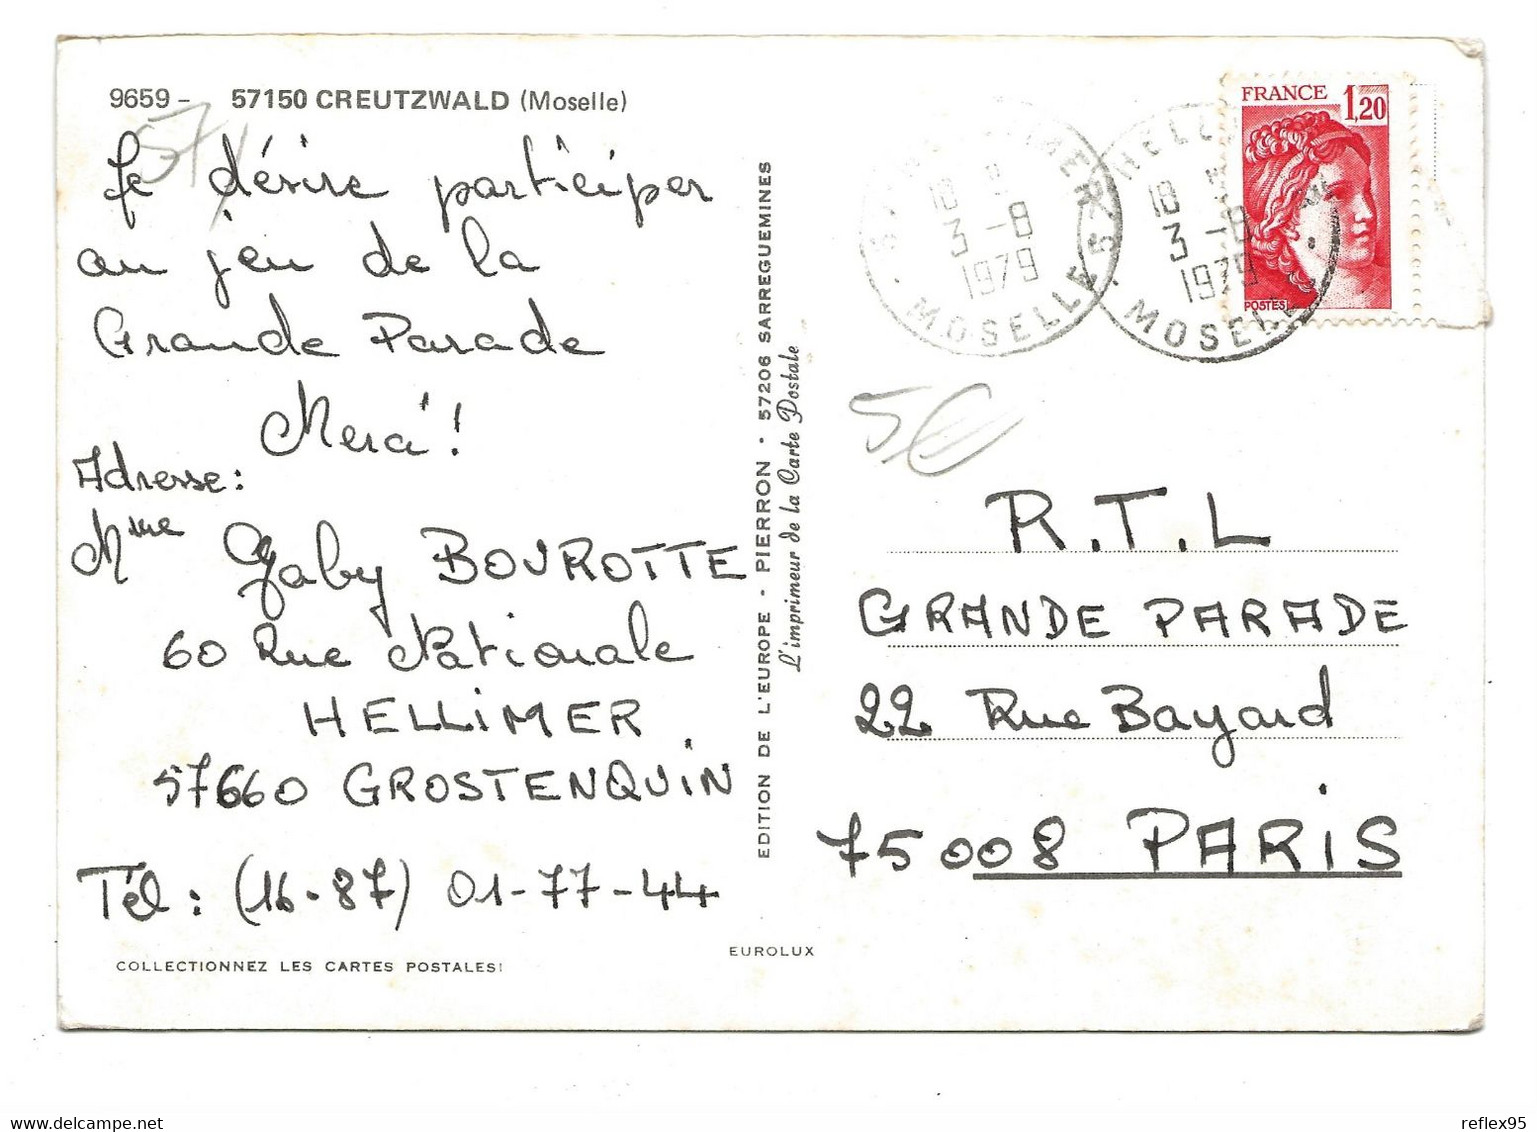 9659 - 57150 CREUTZWALD (Moselle)
57
Je désire participer
au jeu de la
Grande Parade
Merci !
Adresse :
Mme Gaby BOUROTTE
60 Rue Nationale
HELLIMER
57660 GROSTENQUIN
Tél : (16.87) 01-77-44
COLLECTIONNEZ LES CARTES POSTALES!
EDITION DE L'EUROPE - PIERRON - 57206 SARREGUEMINES
L'imprimeur de la Carte Postale
EUROLUX
18 H
3 -8
1979
MOSELLE
18 H
3 -8
1979
MOSELLE
FRANCE 1,20
POSTES
5€
R.T.L
GRANDE PARADE
22 Rue Bayard
75008 PARIS
reflex95